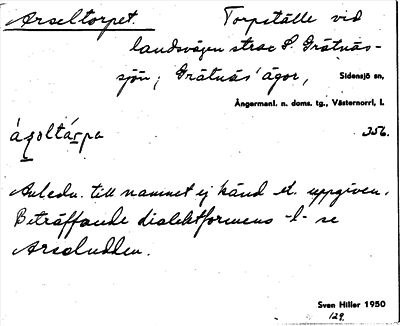 Arseltorpet. Torpställe vid
landsvägen strax S. Grätnäs-
sjön; Grätnäs' ägor, Sidensjö sn,
Ångermanl. n. doms. tg., Västernorrl. l.
356.
Anledn. till namnet ej känd el. uppgiven.
Beträffande dialektformens -l- se
Arseludden.
Sven Hiller 1950
129.